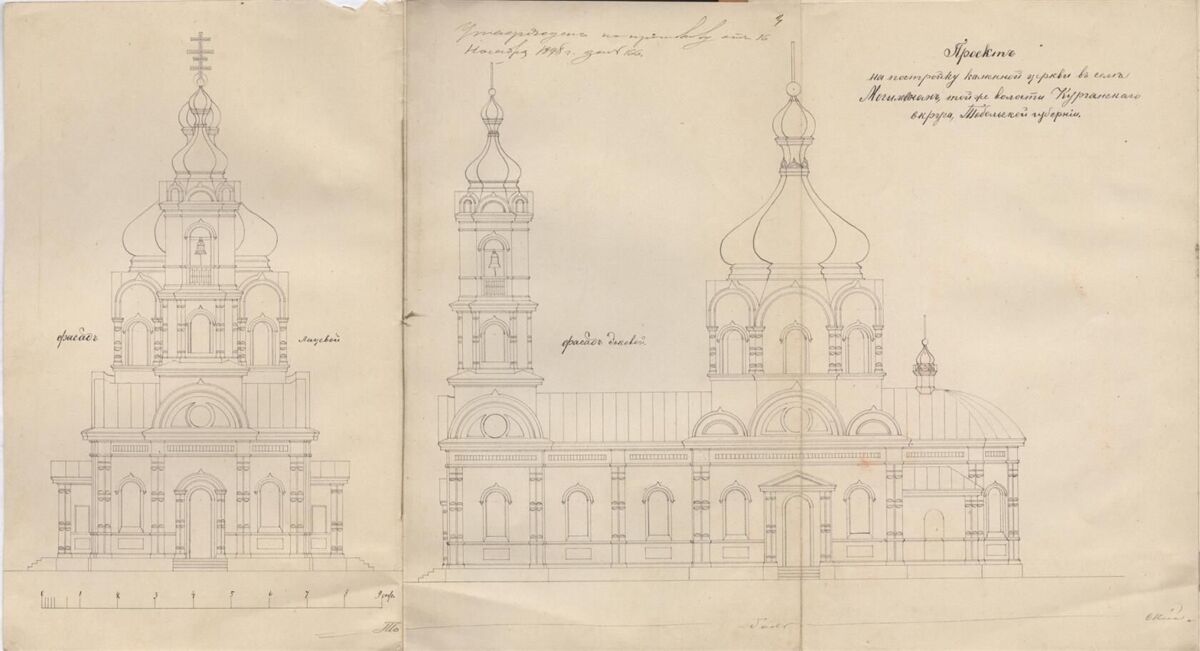 Утвержденъ по протоколу отъ 16
Ноября 1898 г. за №
Проектъ
на постройку каменной церкви въ селѣ
той же волости Курганскаго
округа, Тобольской губерніи.
фасадъ лицевой
фасадъ боковой
0 1 2 3 4 5 6 7 8 9 саж.